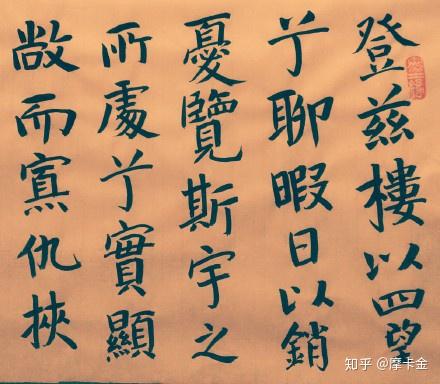 登茲樓以四望
兮聊暇日以銷
憂覽斯宇之
所處兮實顯
敞而寡仇挾
知乎 @摩卡金